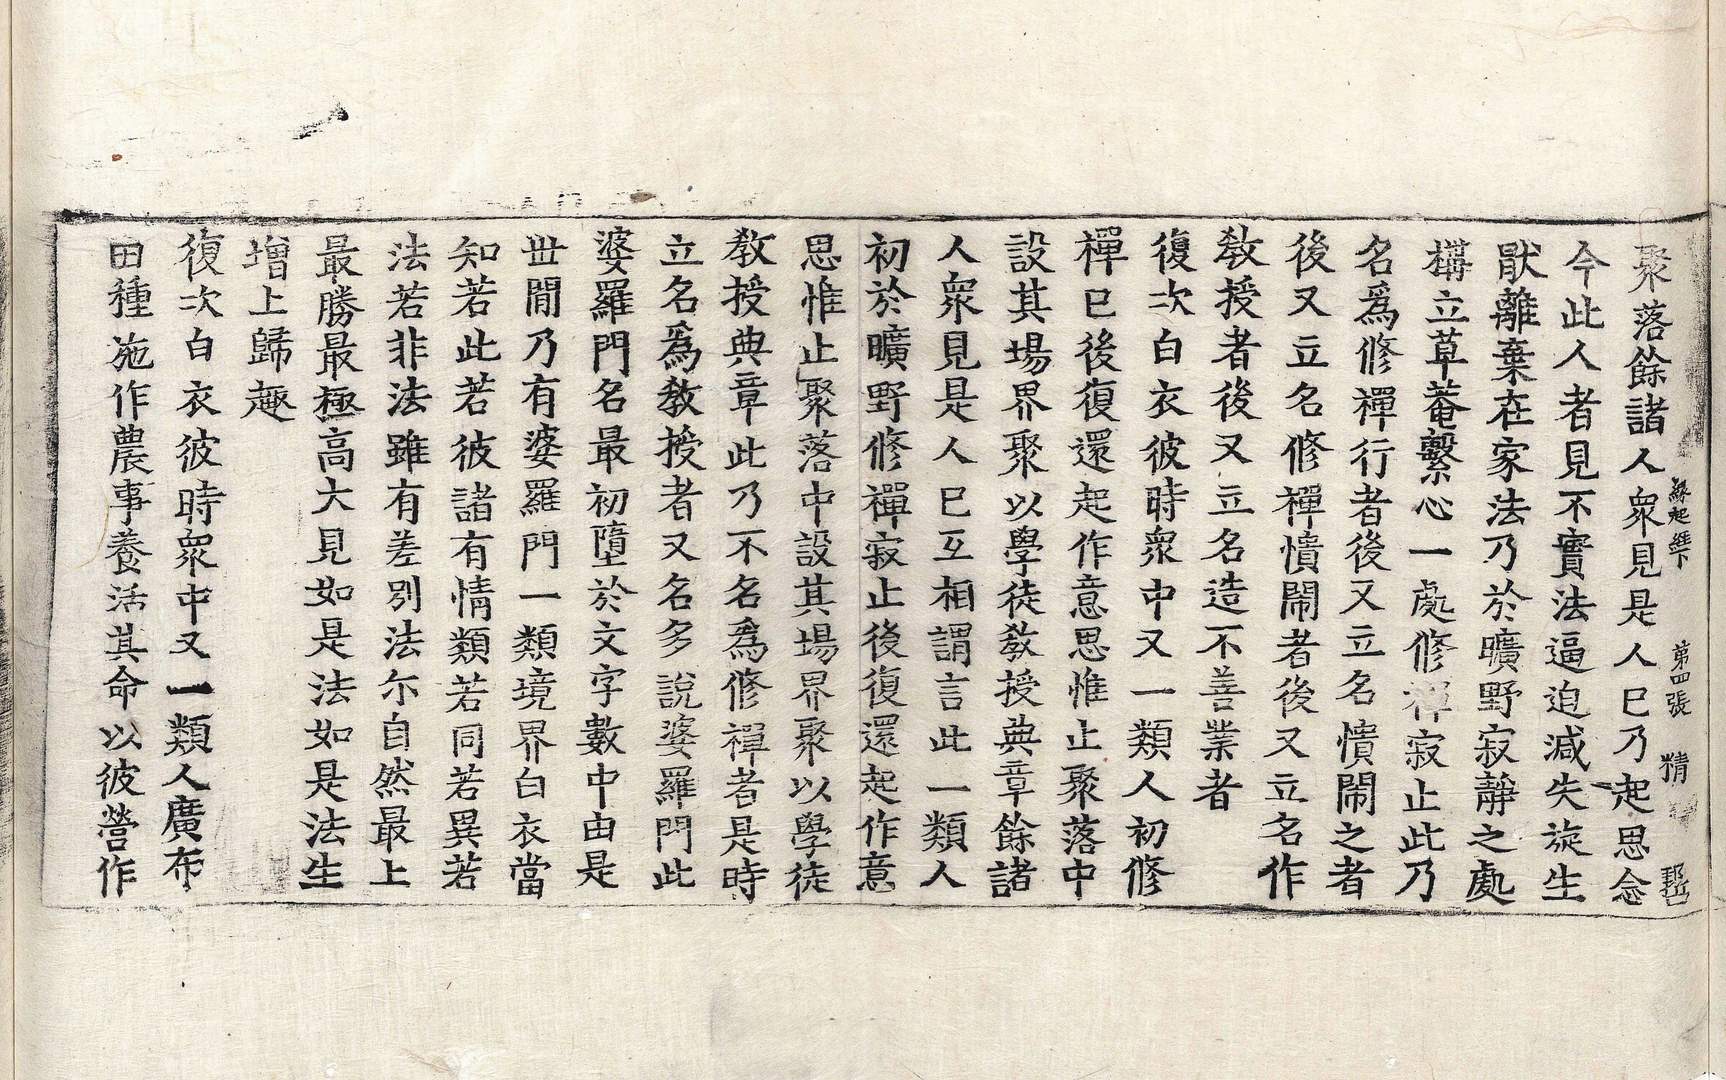 緣起經下　第四張　精
聚落餘諸人衆見是人已乃起思念
今此人者見不實法逼迫減失旋生
猒離棄在家法乃於曠野寂靜之處
構立草菴繫心一處修禪寂止此乃
名爲修禪行者後又立名憒閙之者
後又立名修禪憒閙者後又立名作
教授者後又立名造不善業者
復次白衣彼時衆中又一類人初修
禪已後復還起作意思惟止聚落中
設其場界聚以學徒教授典章餘諸
人衆見是人已互相謂言此一類人
初於曠野修禪寂止後復還起作意
思惟止聚落中設其場界聚以學徒
教授典章此乃不名爲修禪者是時
立名爲教授者又名多說婆羅門此
婆羅門名最初墮於文字數中由是
世間乃有婆羅門一類境界白衣當
知若此若彼諸有情類若同若異若
法若非法雖有差別法尓自然最上
最勝最極高大見如是法如是法生
增上歸趣
復次白衣彼時衆中又一類人廣布
田種施作農事養活其命以彼營作